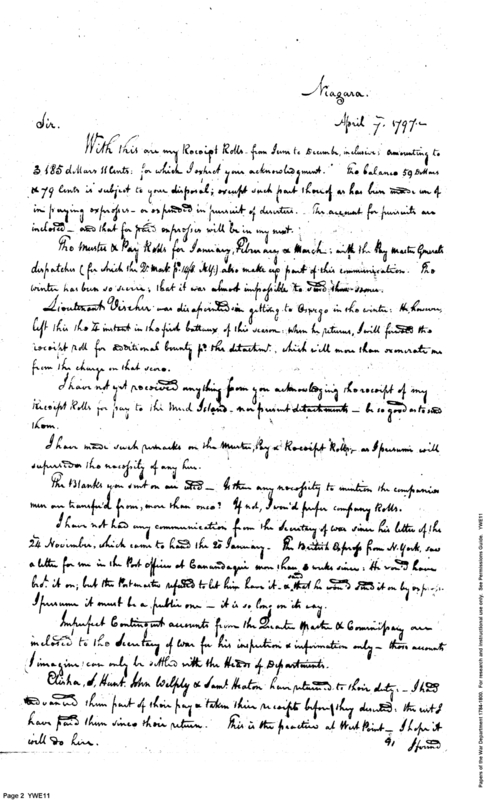 Niagara.
April 7. 1797.
Sir.
With this are my Receipt Rolls from June to December, inclusive; amounting to
3185 dollars 11 Cents: for which I expect your acknowledgment. The balance 59 Dollars
& 79 Cents is subject to your disposal; except such part thereof as has been made use of
in paying expresses - or expended in pursuit of deserters. The account for pursuits are
inclosed - and that for paid expresses will be in my next.
The Muster & Pay Rolls for January, February & March: with the Pay Master Generals
dispatches (for which the also make up part of this communication. The
winter has been so severe; that it was almost impossible to send them sooner.
Lieutenant Visscher was disappointed in getting to Oswego in the winter: He, however
left this the instant in the first batteaux of this season: when he returns, I will forward the
receipt roll for additional bounty pr. this detachmt. which will more than exonerate me
from the charge on that score.
I have not yet received anything from you acknowledging the receipt of my
Receipt Rolls for pay to the Mud Island - nor present detachments - be so good as to send
them.
I have made such remarks on the Muster, Pay & Receipt Rolls, - as I presume will
supersede the necessity of any here.
The Blanks you sent on are used - Is there any necessity to mention the companies
men are transfer'd from, more than once? If not, I wou'd prefer company Rolls.
I have not had any communication from the Secretary of War since his letter of the
24 November, which came to hand the 20 January. The British Express from N. York, saw
a letter for me in the Post office at Canandaiqui more than 3 weeks since: He wou'd have
bro't it on; but the Postmaster refused to let him have it - and that he would send it on by express
I presume it must be a public one - it is so long on its way.
Imperfect Contingent accounts from the Quarter Master & Commissary are
inclosed to the Secretary of War for his inspection & information only - those accounts
I imagine can only be settled with the Heads of Departments.
Elisha S. Hunt, John Welply & Saml. Heaton have returned to their duty. - I had
advanced them part of their pay & taken their receipts before they deserted: the rest I
have paid them since their return. This is the practice at West Point - I hope it
will do here.
I found
Page 2 YWE11
Papers of the War Department 1784-1800. For research and instructional use only. See Permissions Guide. YWE11